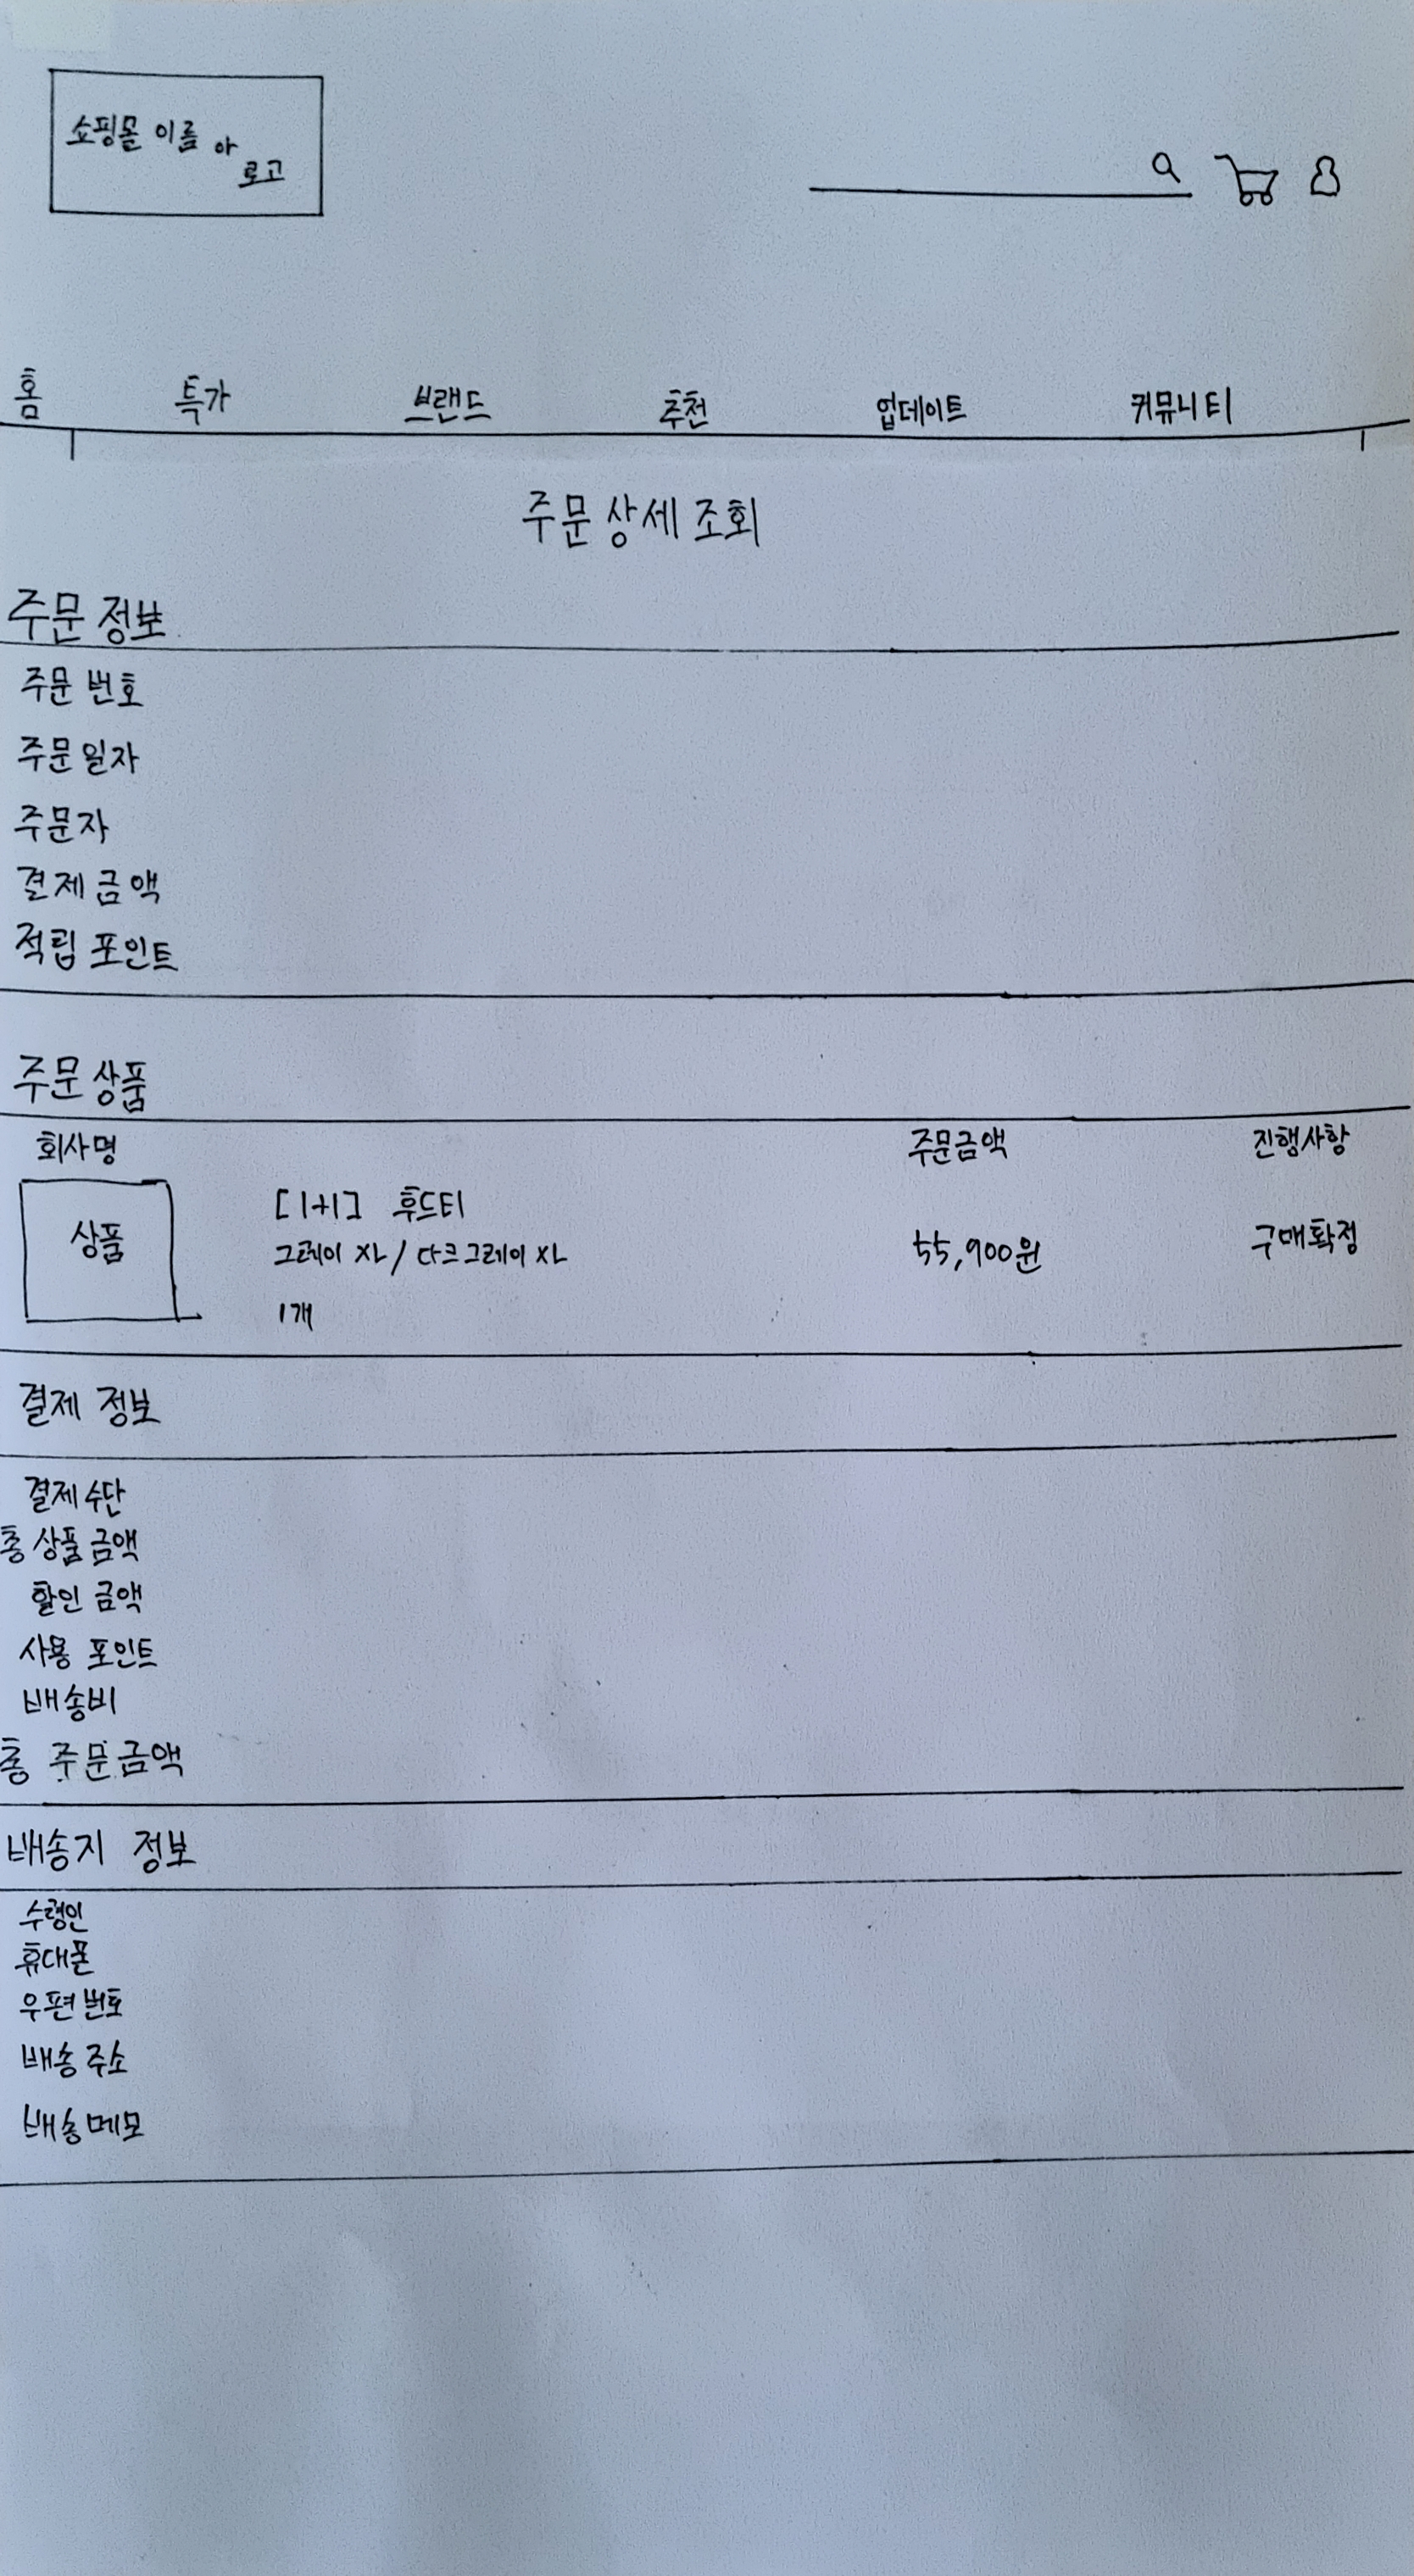 쇼핑몰 이름 아
로고
홈 특가 브랜드 추천 업데이트 커뮤니티
주문 상세 조회
주문 정보
주문 번호
주문 일자
주문자
결제 금액
적립 포인트
주문 상품
회사명 주문금액 진행사항
상품
[1+1] 후드티
그레이 XL / 다크그레이 XL
55,900원 구매확정
1개
결제 정보
결제 수단
총 상품 금액
할인 금액
사용 포인트
배송비
총 주문 금액
배송지 정보
수령인
휴대폰
우편 번호
배송 주소
배송 메모